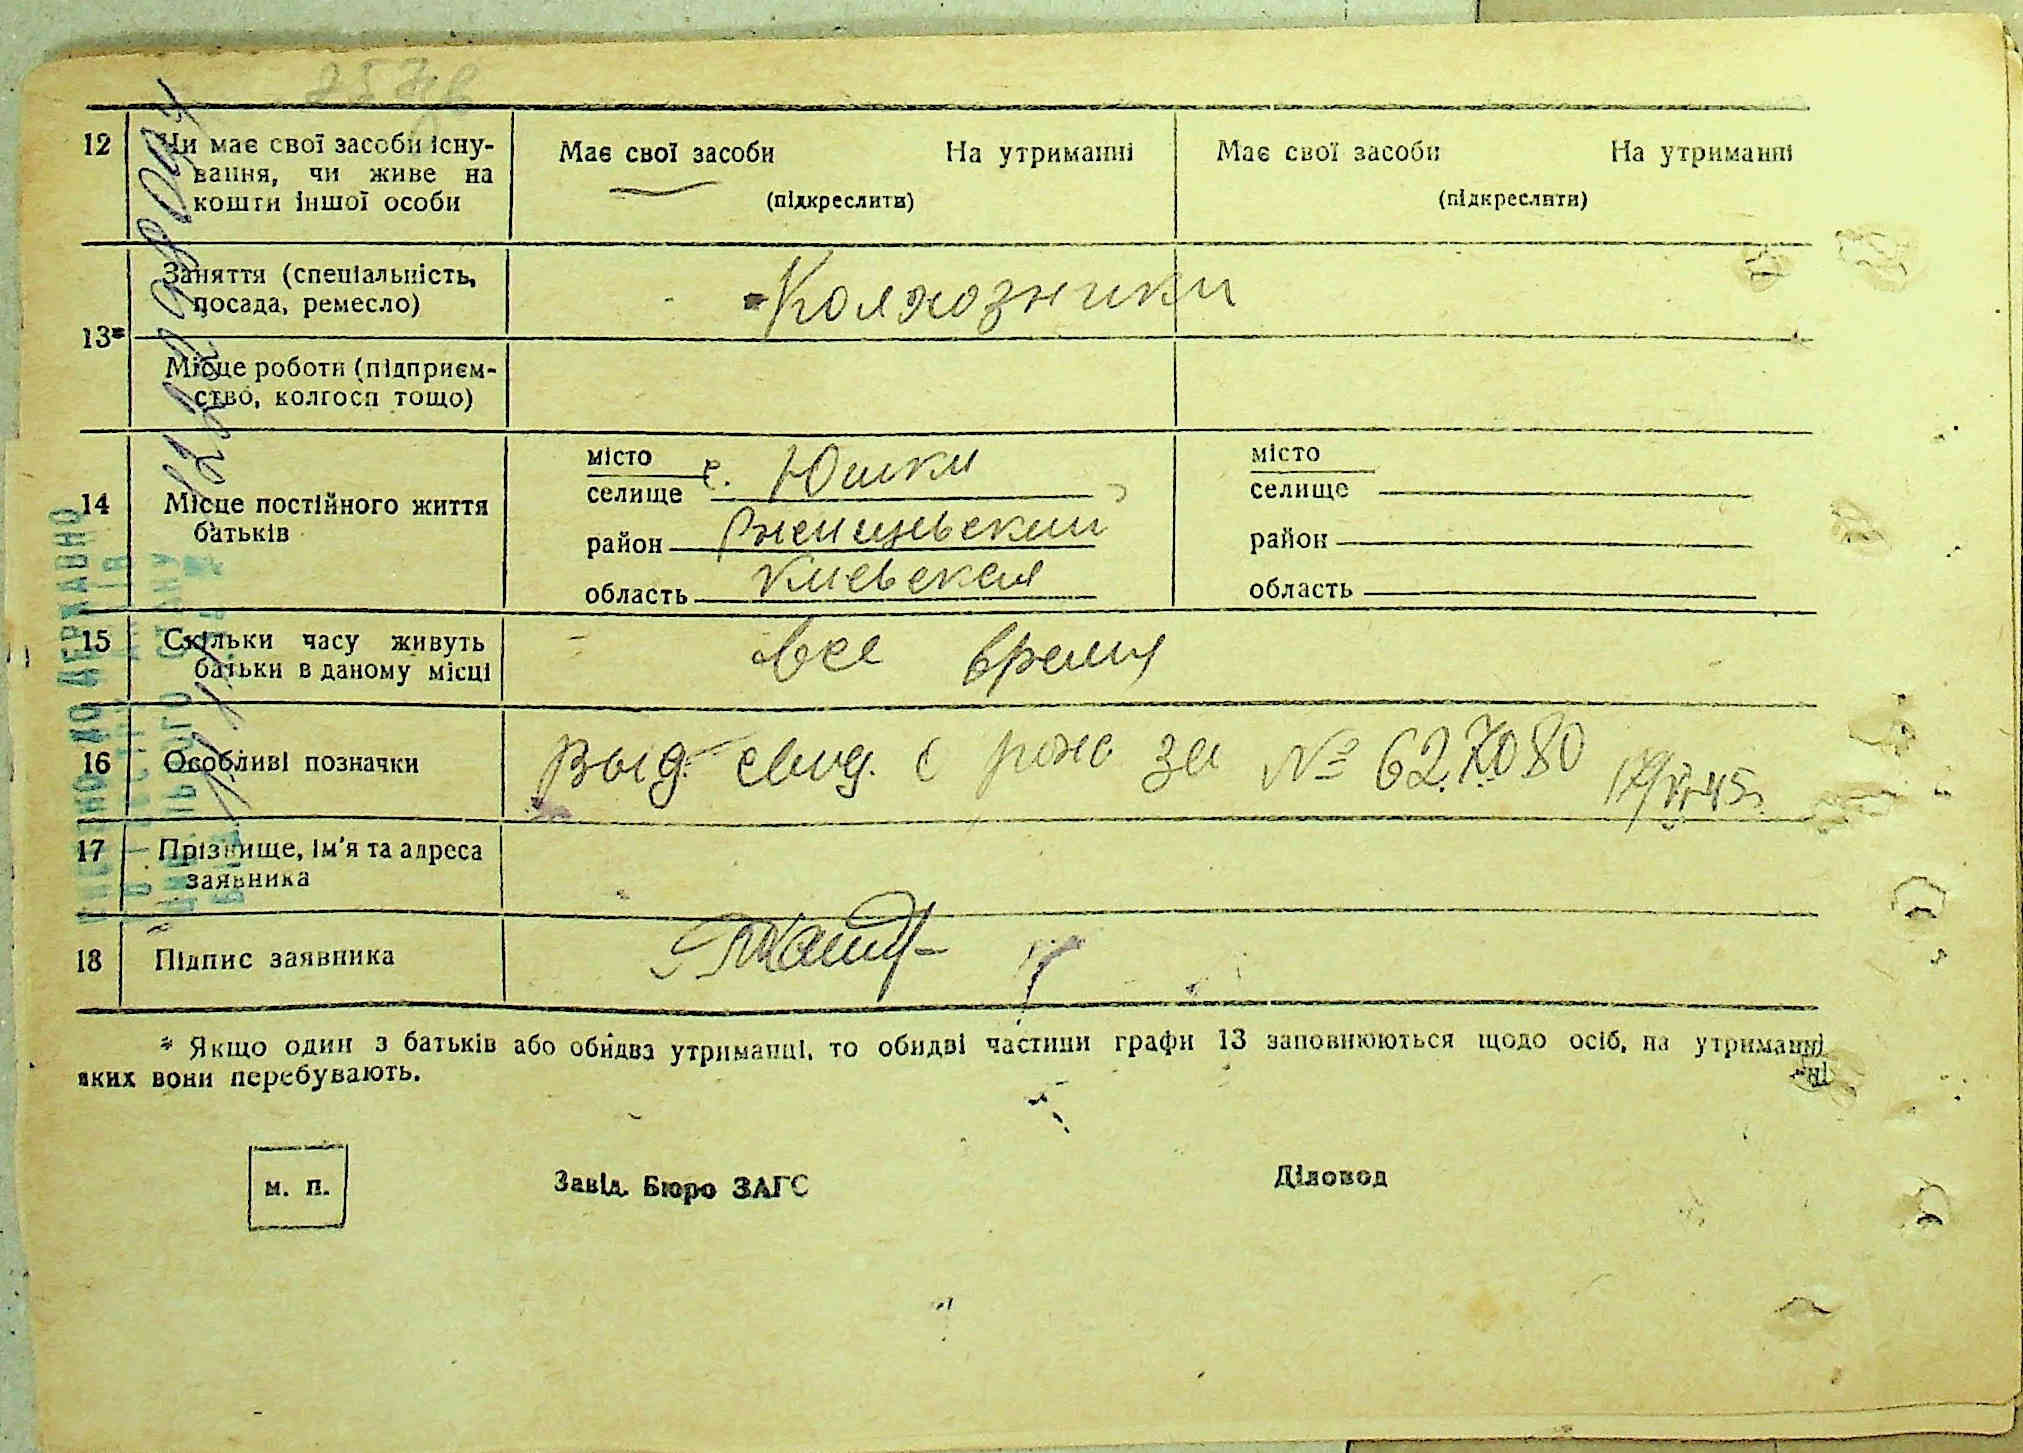 12 Чи має свої засоби існу-
вання, чи живе на
кошти іншої особи
Має свої засоби На утриманні
(підкреслити)
Має свої засоби На утриманні
(підкреслити)
13*
Заняття (спеціальність,
посада, ремесло)
Колхозники
Місце роботи (підприєм-
ство, колгосп тощо)
14 Місце постійного життя
батьків
місто
селище с. Юшки
район Ржищевский
область Киевская
місто
селище
район
область
15 Скільки часу живуть
батьки в даному місці
все время
16 Особливі позначки
Выд. свид. о рож за № 627080
17 Прізвище, ім'я та адреса
заявника
18 Підпис заявника
* Якщо один з батьків або обидва утриманці, то обидві частини графи 13 заповнюються щодо осіб, на утриманні
яких вони перебувають.
м. п.
Завід. Бюро ЗАГС
Діловод